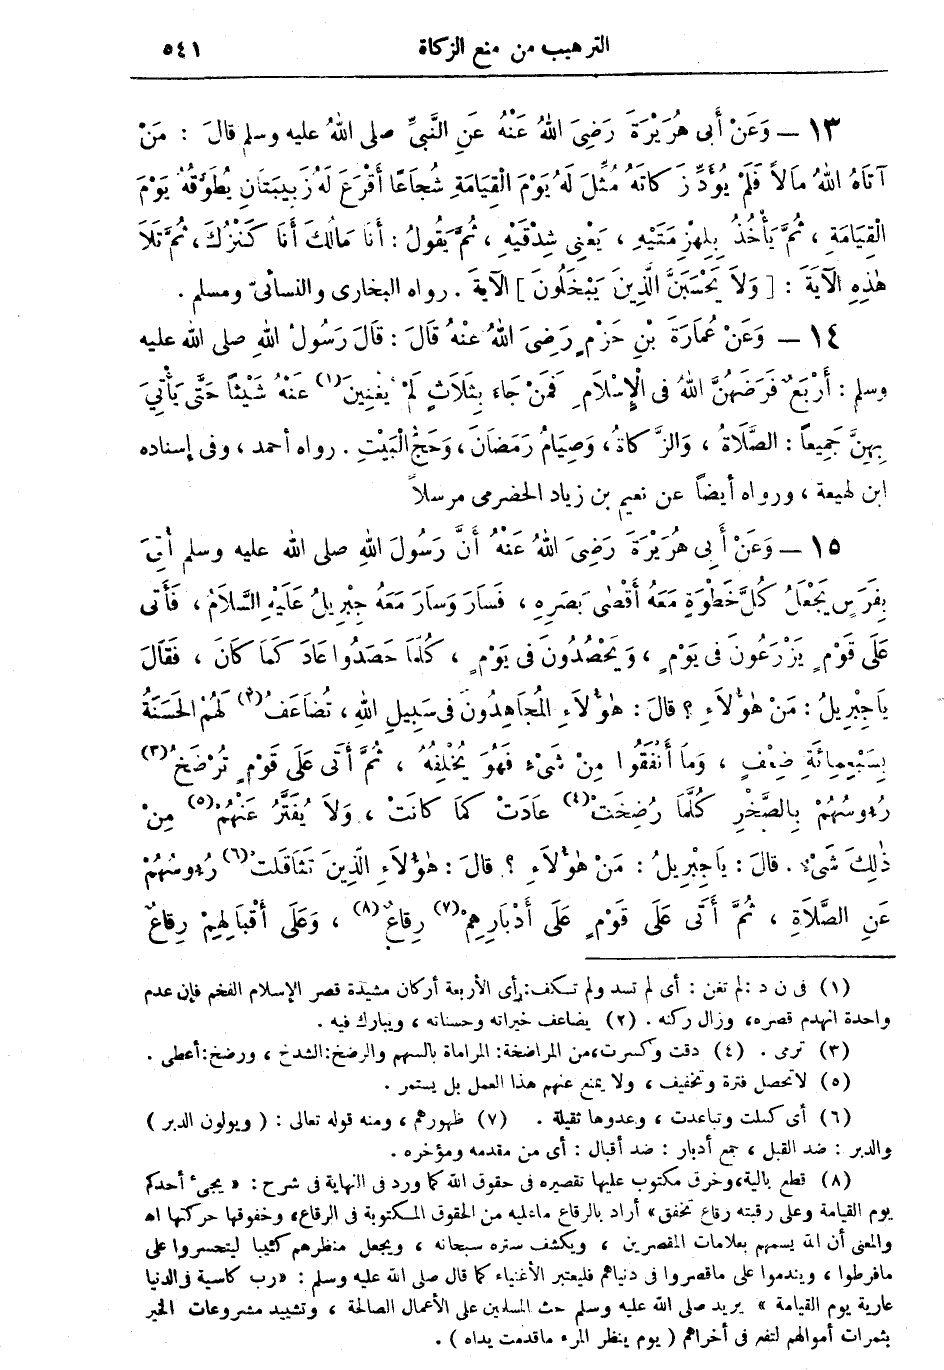 الترهيب من منع الزكاة ٥٤١
١٣ — وَعَنْ أَبى هُرَيْرَةَ رَضِىَ اللهُ عَنْهُ عَنِ النَّبىِّ صلى اللهُ عليه وسلم قالَ : مَنْ
آتَاهُ اللهُ مَالاً فَلَمْ يُؤَدِّ زَكاتَهُ مُثِّلَ لَهُ يَوْمَ الْقِيَامَةِ شُجَاعًا أَقْرَعَ لَهُ زَبِيبَتَانِ يُطَوَّقُهُ يَوْمَ
الْقِيَامَةِ ، ثُمَّ يَأْخُذُ بِلِهْزِمَتَيْهِ ، يَعْنِى شِدْقَيْهِ ، ثُمَّ يَقُولُ : أَنَا مَالُكَ أَنَا كَنْزُكَ ، ثُمَّ تَلاَ
هٰذِهِ الْآيَةَ : [ وَلاَ يَحْسَبَنَّ الَّذِينَ يَبْخَلُونَ ] الآيةَ . رواه البخارى والنسائىّ ومسلم .
١٤ — وَعَنْ عُمَارَةَ بْنِ حَزْمٍ رَضِىَ اللهُ عَنْهُ قَالَ : قَالَ رَسُولُ اللهِ صلى الله عليه
وسلم : أَرْبَعٌ فَرَضَهُنَّ اللهُ فى الْإِسْلَامِ فَمَنْ جَاءَ بِثَلَاثٍ لَمْ يُغْنِينَ (١) عَنْهُ شَيْئًا حَتَّى يَأْتِيَ
بِهِنَّ جَمِيعاً : الصَّلاَةُ ، وَالزَّكاةُ ، وَصِيَامُ رَمَضَانَ ، وَحَجُّ الْبَيْتِ . رواه أحمد ، وفى إسناده
ابن لهيعة ، ورواه أيضاً عن نعيم بن زياد الحضرمى مرسلاً
١٥ — وَعَنْ أَبِى هُرَيْرَةَ رَضِىَ اللهُ عَنْهُ أَنَّ رَسُولَ اللهِ صلى الله عليه وسلم أُتِىَ
بِفَرَسٍ يَجْعَلُ كُلَّ خَطْوَةٍ مَعَهُ أَقْصَى بَصَرِهِ ، فَسَارَ وَسَارَ مَعَهُ جِبْرِيلُ عَلَيْهِ السَّلَامُ ، فَأَتَى
عَلَى قَوْمٍ يَزْرَعُونَ فى يَوْمٍ ، وَيَحْصُدُونَ فى يَوْمٍ ، كُلَّمَا حَصَدُوا عَادَ كَمَا كَانَ ، فَقَالَ
يَاجِبْرِيلُ : مَنْ هٰؤُلَاءِ ؟ قالَ : هٰؤُلَاءِ الْمُجَاهِدُونَ فى سَبِيلِ اللهِ ، تُضَاعَفُ (٢) لَهُمْ الحَسَنَةُ
بِسَبْعِمِائَةِ ضِعْفٍ ، وَمَا أَنْفَقُوا مِنْ شَىْءٍ فَهُوَ يُخْلِفُهُ ، ثُمَّ أَتَى عَلَى قَوْمٍ تُرْضَخُ (٣)
رُءُوسُهُمْ بِالصَّخْرِ كُلَّمَا رُضِخَتْ (٤) عَادَتْ كَمَا كَانَتْ ، وَلاَ يُفَتَّرُ عَنْهُمْ (٥) مِنْ
ذٰلِكَ شَىْءٌ . قالَ : يَاجِبْرِيلُ : مَنْ هٰؤُلاَءِ ؟ قالَ : هٰؤُلَاءِ الَّذِينَ تَثَاقَلَتْ (٦) رُءُوسُهُمْ
عَنِ الصَّلَاةِ ، ثُمَّ أَتَى عَلَى قَوْمٍ عَلَى أَدْبَارِهِمْ (٧) رِقَاعٌ (٨) ، وَعَلَى أَقْبَالِهِمْ رِقَاعٌ
(١) فى ن د : لم تغن : أى لم تسد ولم تكف : أى الأربعة أركان مشيدة قصر الإسلام الفخم فإن عدم
واحدة انهدم قصره، وزال ركنه . (٢) يضاعف خيراته وحسناته ، ويبارك فيه .
(٣) ترمى . (٤) دقت وكسرت، من المراضخة: المراماة بالسهم والرضخ: الشدخ ، ورضخ: أعطى .
(٥) لاتحصل فترة وتخفيف ، ولا يمنع عنهم هذا العمل بل يستمر .
(٦) أى كسلت وتباعدت ، وعدوها ثقيلة . (٧) ظهورهم ، ومنه قوله تعالى : ( ويولون الدبر )
والدبر : ضد القبل ، جمع أدبار : ضد أقبال : أى من مقدمه ومؤخره .
(٨) قطع بالية، وخرق مكتوب عليها تقصيره فى حقوق الله كما ورد فى النهاية فى شرح : « يجىء أحدكم
يوم القيامة وعلى رقبته رقاع تخفق » أراد بالرقاع ماعليه من الحقوق المكتوبة فى الرقاع، وخفوقها حركتها اه
والمعنى أن الله يسمهم بعلامات المقصرين ، ويكشف ستره سبحانه ، ويجعل منظرهم كئيبا ليتحسروا على
مافرطوا ، ويندموا على ماقصروا فى دنياهم فليعتبر الأغنياء كما قال صلى الله عليه وسلم : «رب كاسية فى الدنيا
عارية يوم القيامة » يريد صلى الله عليه وسلم حث المسلمين على الأعمال الصالحة ، وتشييد مشروعات الخير
بثمرات أموالهم لتفه فى أخراهم ( يوم ينظر المرء ماقدمت يداه ) .